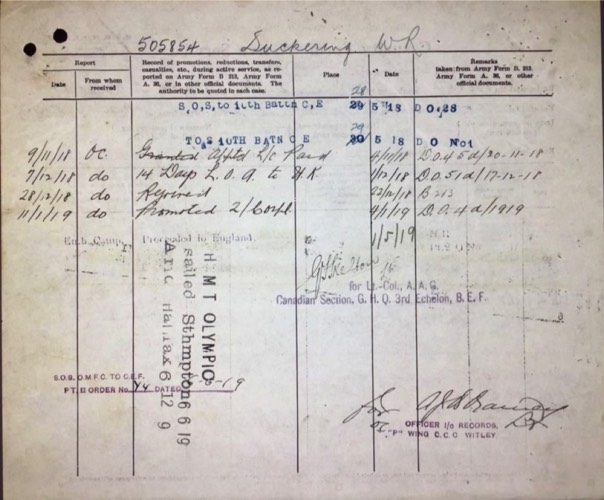 505854 Suckering W.R.
Report
Record of promotions, reductions, transfers, casualties, etc., during active service, as reported on Army Form B 213, Army Form A. 36, or in other official documents. The authority to be quoted in each case.
Place
Date
Remarks
taken from Army Form B 213, Army Form A. 36, or other official documents.
Date
From whom received
28
S.O.S. to 10th Battn C.E 29 5 18 D O.28
29
TOS 10TH BATN C E 5 18 D O No 1
9/11/18 OC. Granted Aptd L/c Paid 4/11/18 D.O. 45 d/20-11-18
7/12/18 do 14 Days L.O.A. to UK /12/18 D.O. 51 d/17-12-18
28/12/18 do Rejoined 22/12/18 B 213
11/1/19 do Promoted 2/Corpl 9/1/19 D.O. 4 d/1919
1/5/19
Proceeded to England.
G Skelton
for Lt.-Col., A.A.G.
Canadian Section, G. H. Q. 3rd Echelon, B. E. F.
H M T OLYMPIC
sailed Sthmpton 6 6 19
Arrc Halifax 6 12 9
S.O.S. O.M.F.C. TO C.E.F.
PT. II ORDER No. 44 DATED -6-19
for
OFFICER I/c RECORDS,
WING C.C.C WITLEY.